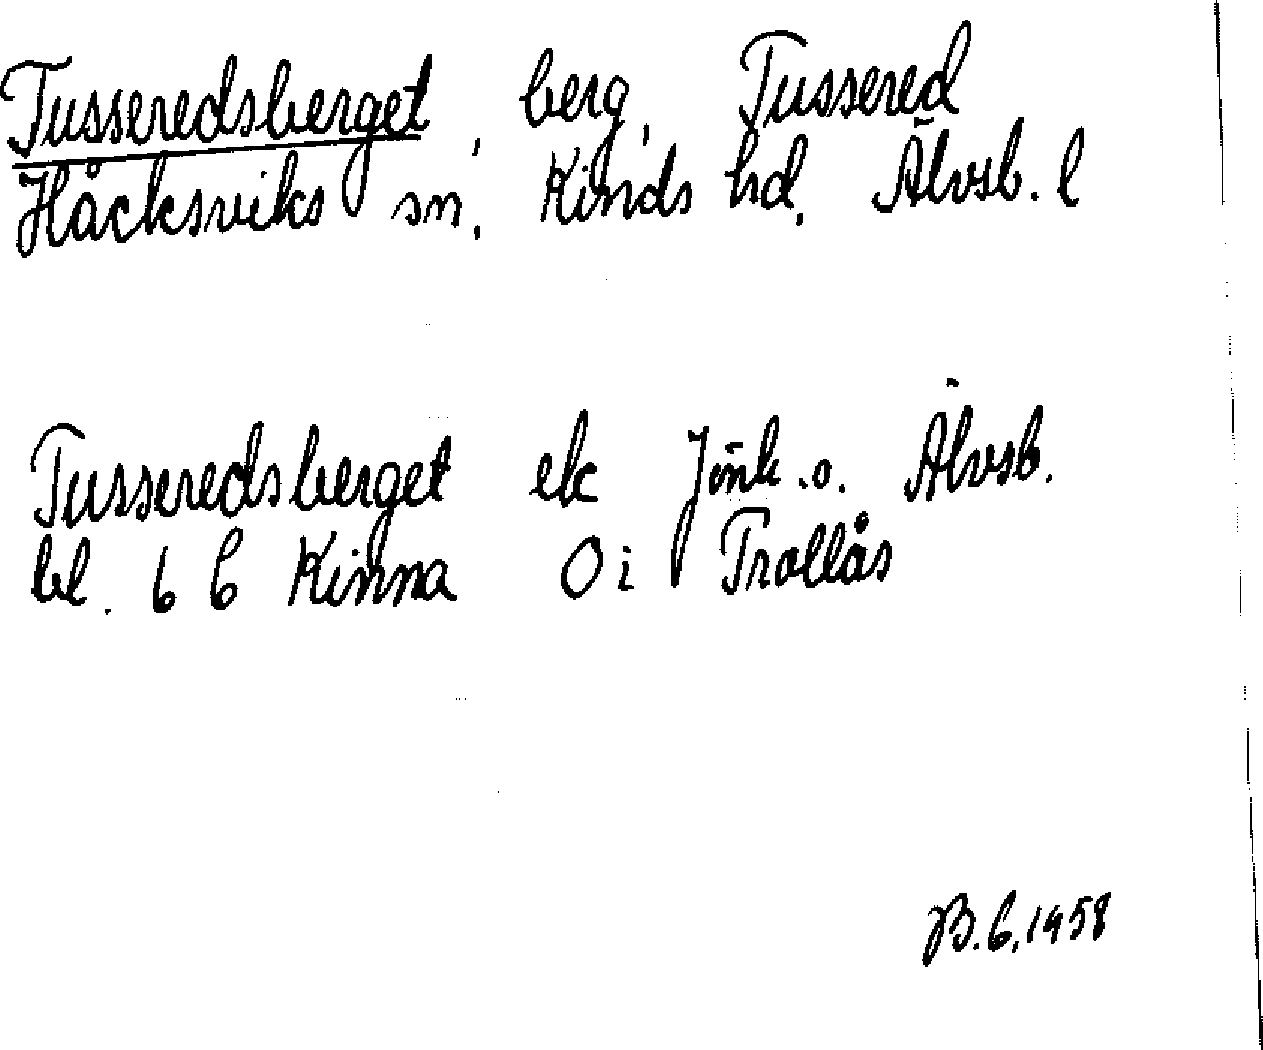 Tusseredsberget, berg, Tussered
Håcksviks sn, Kinds hd, Älvsb. l
Tusseredsberget ek Jönk. o. Älvsb.
bl. 6 6 Kinna O i Trollås
B. 6, 1958